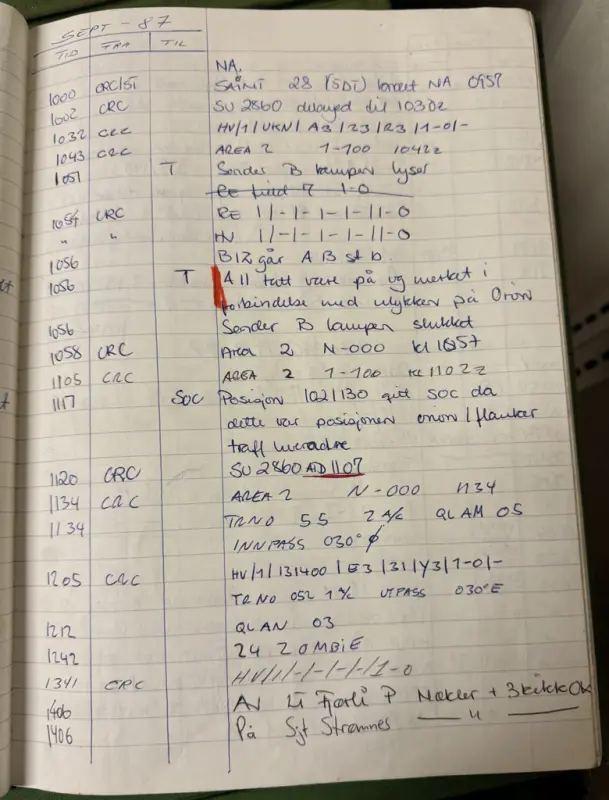 SEPT - 87
TID FRA TIL
NA.
1000 CRC/ST SAINT 28 (SDT) NA 0957
1002 CRC SU 2860 delayed til 1030z
1032 CRC HV/1/UKN/A3/23/R3/1-0/-
1043 CRC AREA 2 1-100 1042z
1051 T Sender B lampen lyser
1-0
1054 CRC RE 1/-1-1-1-1/1-0
" " HV 1/-1-1-1-1/1-0
1056 går A B st b.
1056 T All tatt vare på og merket i
forbindelse med ulykken på Orion
1056 Sender B lampen slukket
1058 CRC Area 2 N-000 kl 1057
1105 CRC AREA 2 1-100 kl 1102z
1117 SOC Posisjon 1021130 gitt SOC da
dette var posisjonen orion/flanker
traff hverandre
1120 CRC SU 2860 1107
1134 CRC AREA 2 N-000 1134
1134 TRNO 55 2 A/C QLAM 05
INNPASS 030° φ
1205 CRC HV/1/131400/E3/31/Y3/1-0/-
TRNO 052 1 A/C UTPASS 030°E
1212 QLAN 03
1242 24 ZOMBIE
1341 CRC HV/1/-/-/-/-/1-0
1406 AV Lt Fjørli P Nøkler + 3 kikk OK
1406 På Sjt Strømnes — " —